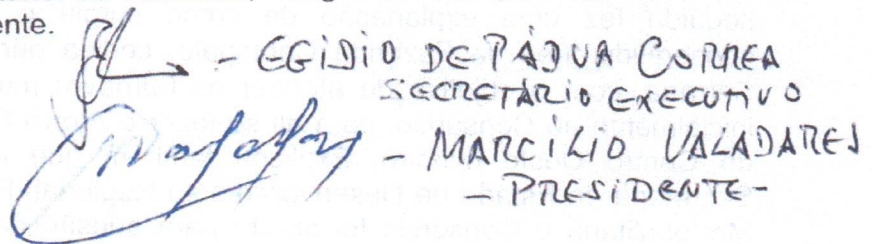 ente.
- EGIDIO DE PÁDUA CORREA
SECRETÁRIO EXECUTIVO
- MARCÍLIO VALADARES
- PRESIDENTE -